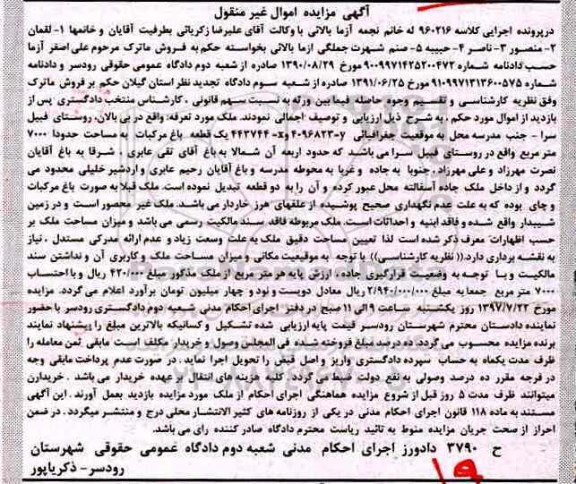 آگهی مزایده اموال غیر منقول
درپرونده اجرایی کلاسه ۹۶۰۲۱۶ له خانم نجمه آزما بالائی با وکالت آقای علیرضا زکریائی بطرفیت آقایان و خانمها ۱- لقمان
۲- منصور ۳- ناصر ۴- حبیبه ۵- صنم شهرت جملگی آزما بالائی بخواسته حکم به فروش ماترک مرحوم علی اصغر آزما
حسب دادنامه شماره ۹۰۰۹۹۷۱۴۲۵۲۰۰۴۷۲ مورخ ۱۳۹۰/۰۸/۲۹ صادره از شعبه دوم دادگاه عمومی حقوقی رودسر و دادنامه
شماره ۹۱۰۹۹۷۱۳۱۳۶۰۰۵۷۵ مورخ ۱۳۹۱/۰۶/۲۵ صادره از شعبه سوم دادگاه تجدید نظر استان گیلان حکم بر فروش ماترک
وفق نظریه کارشناسی و تقسیم وجوه حاصله فیما بین ورثه به نسبت سهم قانونی ، کارشناس منتخب دادگستری پس از
بازدید از اموال مورد حکم ، به شرح ذیل ارزیابی و توصیف اجمالی نمودند. ملک مورد تعرفه: واقع در بی بالان، روستای قبیل
سرا - جنب مدرسه محل به موقعیت جغرافیائی y-۴۰۹۶۸۲۳ وx- ۴۴۳۷۴۴ یک قطعه باغ مرکبات به مساحت حدودا ۷۰۰۰
متر مربع واقع در روستای قبیل سرا می باشد که حدود اربعه آن شمالا به باغ آقای تقی عابری ، شرقا به باغ آقایان
نصرت مهرزاد و علی مهرزاد، جنوبا به جاده و غربا به محوطه مدرسه و باغ آقایان رحیم عابری و اردشیر خلیلی محدود می
گردد و از داخل ملک جاده آسفالته محل عبور کرده و آن را به دو قطعه تبدیل نموده است. ملک قبلا به صورت باغ مرکبات
و چای بوده که به علت عدم نگهداری صحیح پوشیده از علفهای هرز خاردار می باشد. ملک غیر محصور است و در زمین
شیبدار واقع شده و فاقد ابنیه و احداثات است. ملک مربوطه فاقد سند مالکیت رسمی می باشد و میزان مساحت ملک بر
حسب اظهارات معرف ذکر شده است لذا تعیین مساحت دقیق ملک به علت وسعت زیاد و عدم ارائه مدرکی مستدل ، نیاز
به نقشه برداری دارد.(( نظریه کارشناسی)) با توجه به موقعیت مکانی و میزان مساحت ملک و کاربری آن و نداشتن سند
مالکیت و با توجه به وضعیت قرارگیری جاده ، ارزش پایه هر متر مربع از ملک مذکور مبلغ ۴۲۰/۰۰۰ ریال و با احتساب
۷۰۰۰ متر مربع جمعا به مبلغ ۲/۹۴۰/۰۰۰/۰۰۰ ریال معادل دویست و نود و چهار میلیون تومان برآورد اعلام می گردد. مزایده
مورخ ۱۳۹۷/۷/۲۲ روز یکشنبه ساعت ۹ الی ۱۱ صبح در دفتر اجرای احکام مدنی شعبه دوم دادگستری رودسر با حضور
نماینده دادستان محترم شهرستان رودسر قیمت پایه ارزیابی شده تشکیل و کسانیکه بالاترین مبلغ را پیشنهاد نمایند
برنده مزایده محسوب می گردد. ده درصد مبلغ فروخته شده فی المجلس وصول و خریدار مکلف است مابقی ثمن معامله را
ظرف مدت یکماه به حساب سپرده دادگستری واریز و اصل فیش را تحویل اجرا نماید . در صورت عدم پرداخت مابقی وجه
در فرجه مقرر ده درصد وصولی به نفع دولت ضبط می گردد. کلیه هزینه های انتقال بر عهده خریدار می باشد . خریداران
میتوانند ظرف مدت ۵ روز قبل از شروع مزایده هماهنگی اجرای احکام از ملک مورد مزایده بازدید بعمل آورند. این آگهی
مستند به ماده ۱۱۸ قانون اجرای احکام مدنی در یکی از روزنامه های کثیر الانتشار محلی درج و منتشر میگردد . در ضمن
احراز از صحت جریان مزایده منوط به تائید ریاست محترم دادگاه صادر کننده رای می باشد.
ح ۳۷۹۰ دادورز اجرای احکام مدنی شعبه دوم دادگاه عمومی حقوقی شهرستان
رودسر- ذکریاپور
۱۹